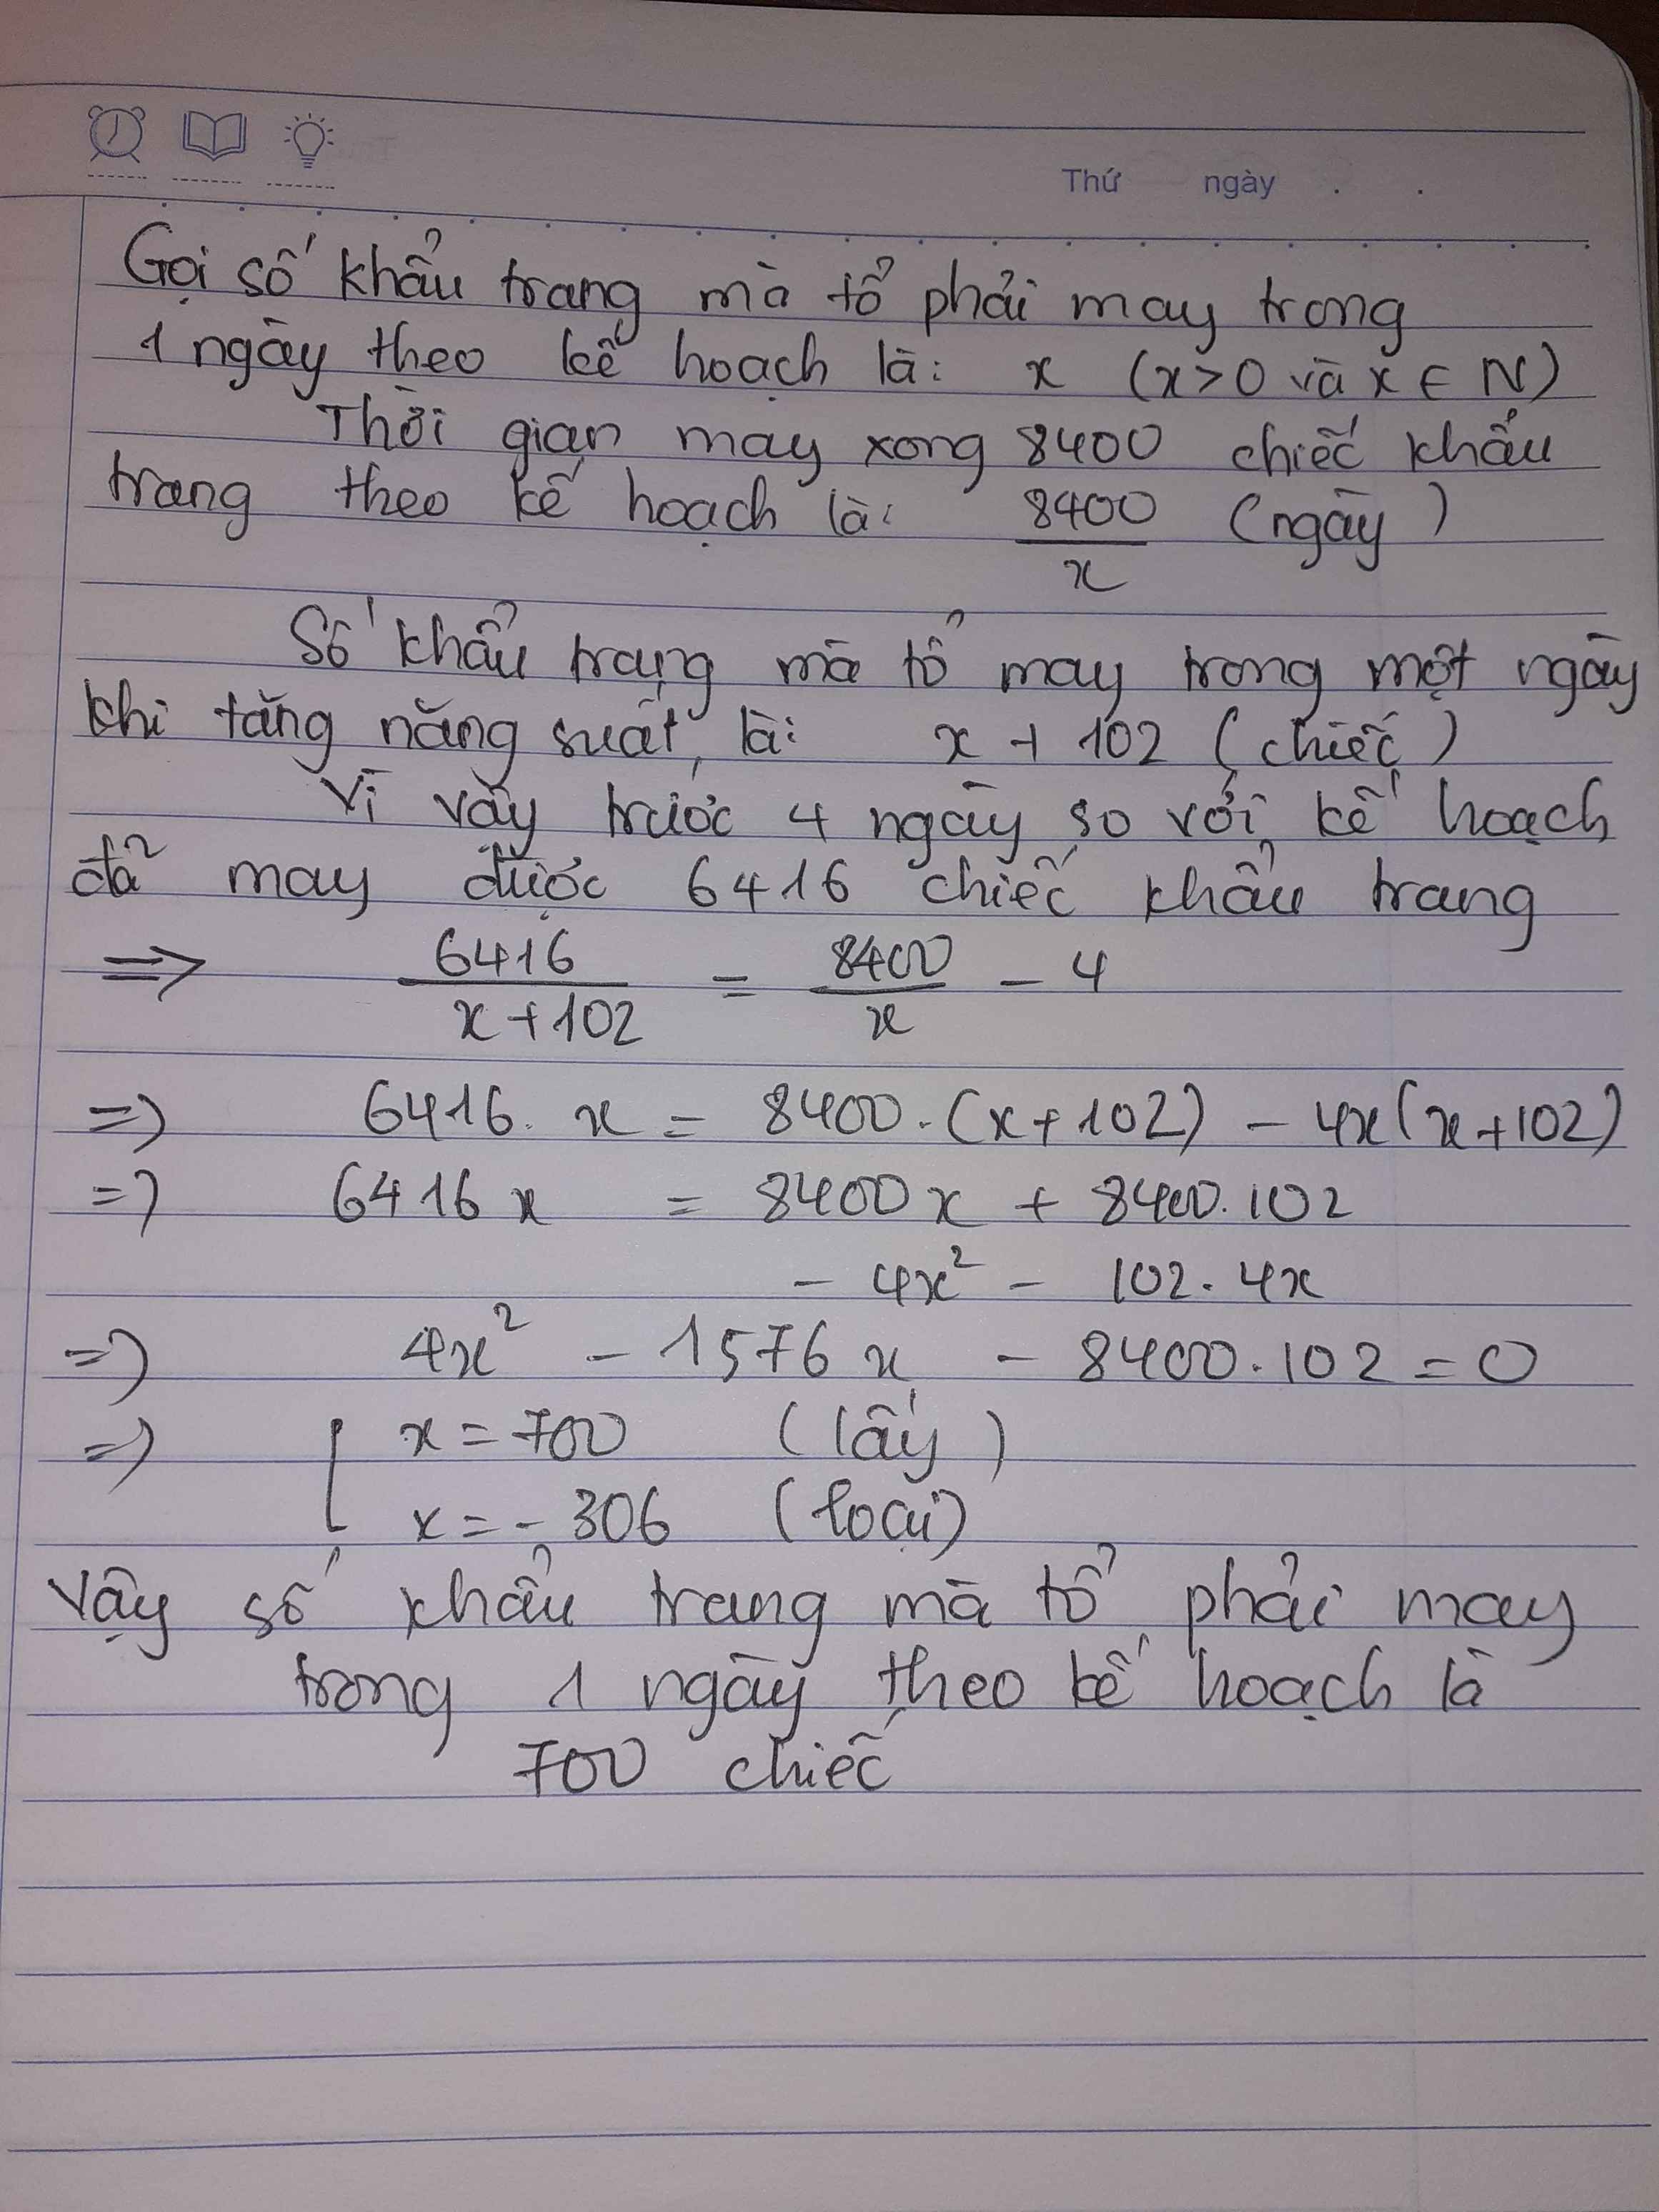 Thứ ngày . .
Gọi số khẩu trang mà tổ phải may trong
1 ngày theo kế hoạch là: x (x>0 và x ∈ N)
Thời gian may xong 8400 chiếc khẩu
trang theo kế hoạch là: 8400/x (ngày)
Số khẩu trang mà tổ may trong một ngày
khi tăng năng suất, là: x + 102 (chiếc)
Vì vậy trước 4 ngày so với kế hoạch
đã may được 6416 chiếc khẩu trang
=> 6416/(x+102) = 8400/x - 4
=> 6416. x = 8400.(x+102) - 4x(x+102)
=> 6416x = 8400x + 8400.102
- 4x² - 102.4x
=> 4x² - 1576x - 8400.102 = 0
=> [ x = 700 (lấy)
x = - 306 (loại)
Vậy số khẩu trang mà tổ phải may
trong 1 ngày theo kế hoạch là
700 chiếc